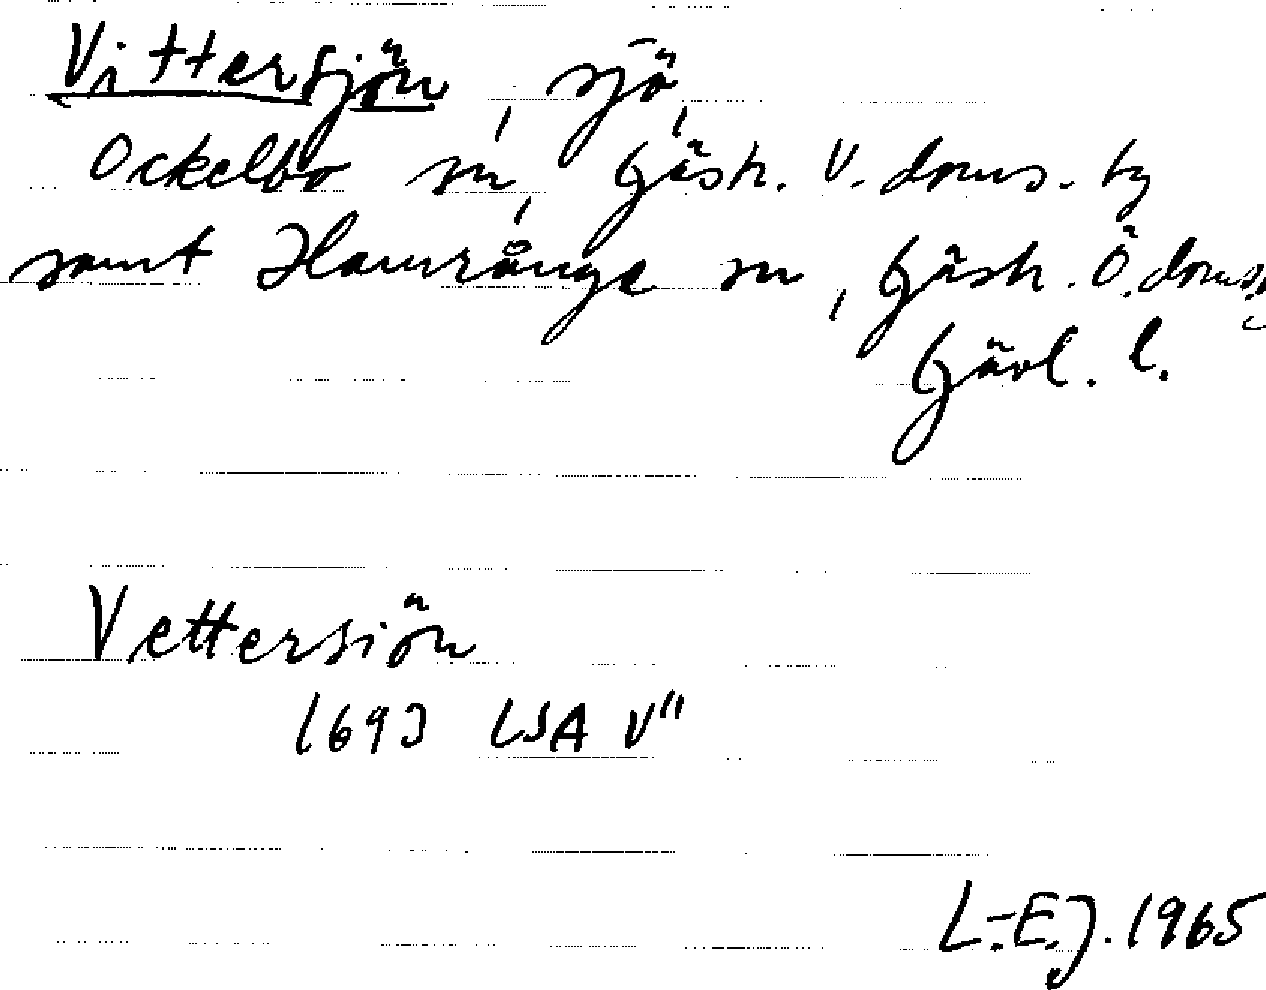 Vittersjön, sjö,
Ockelbo sn, Gästr. V. doms. tg
samt Hamrånge sn, Gästr. Ö. doms.
Gävl. l.
Vettersiön
1693 LSA V"
L.-E.J. 1965